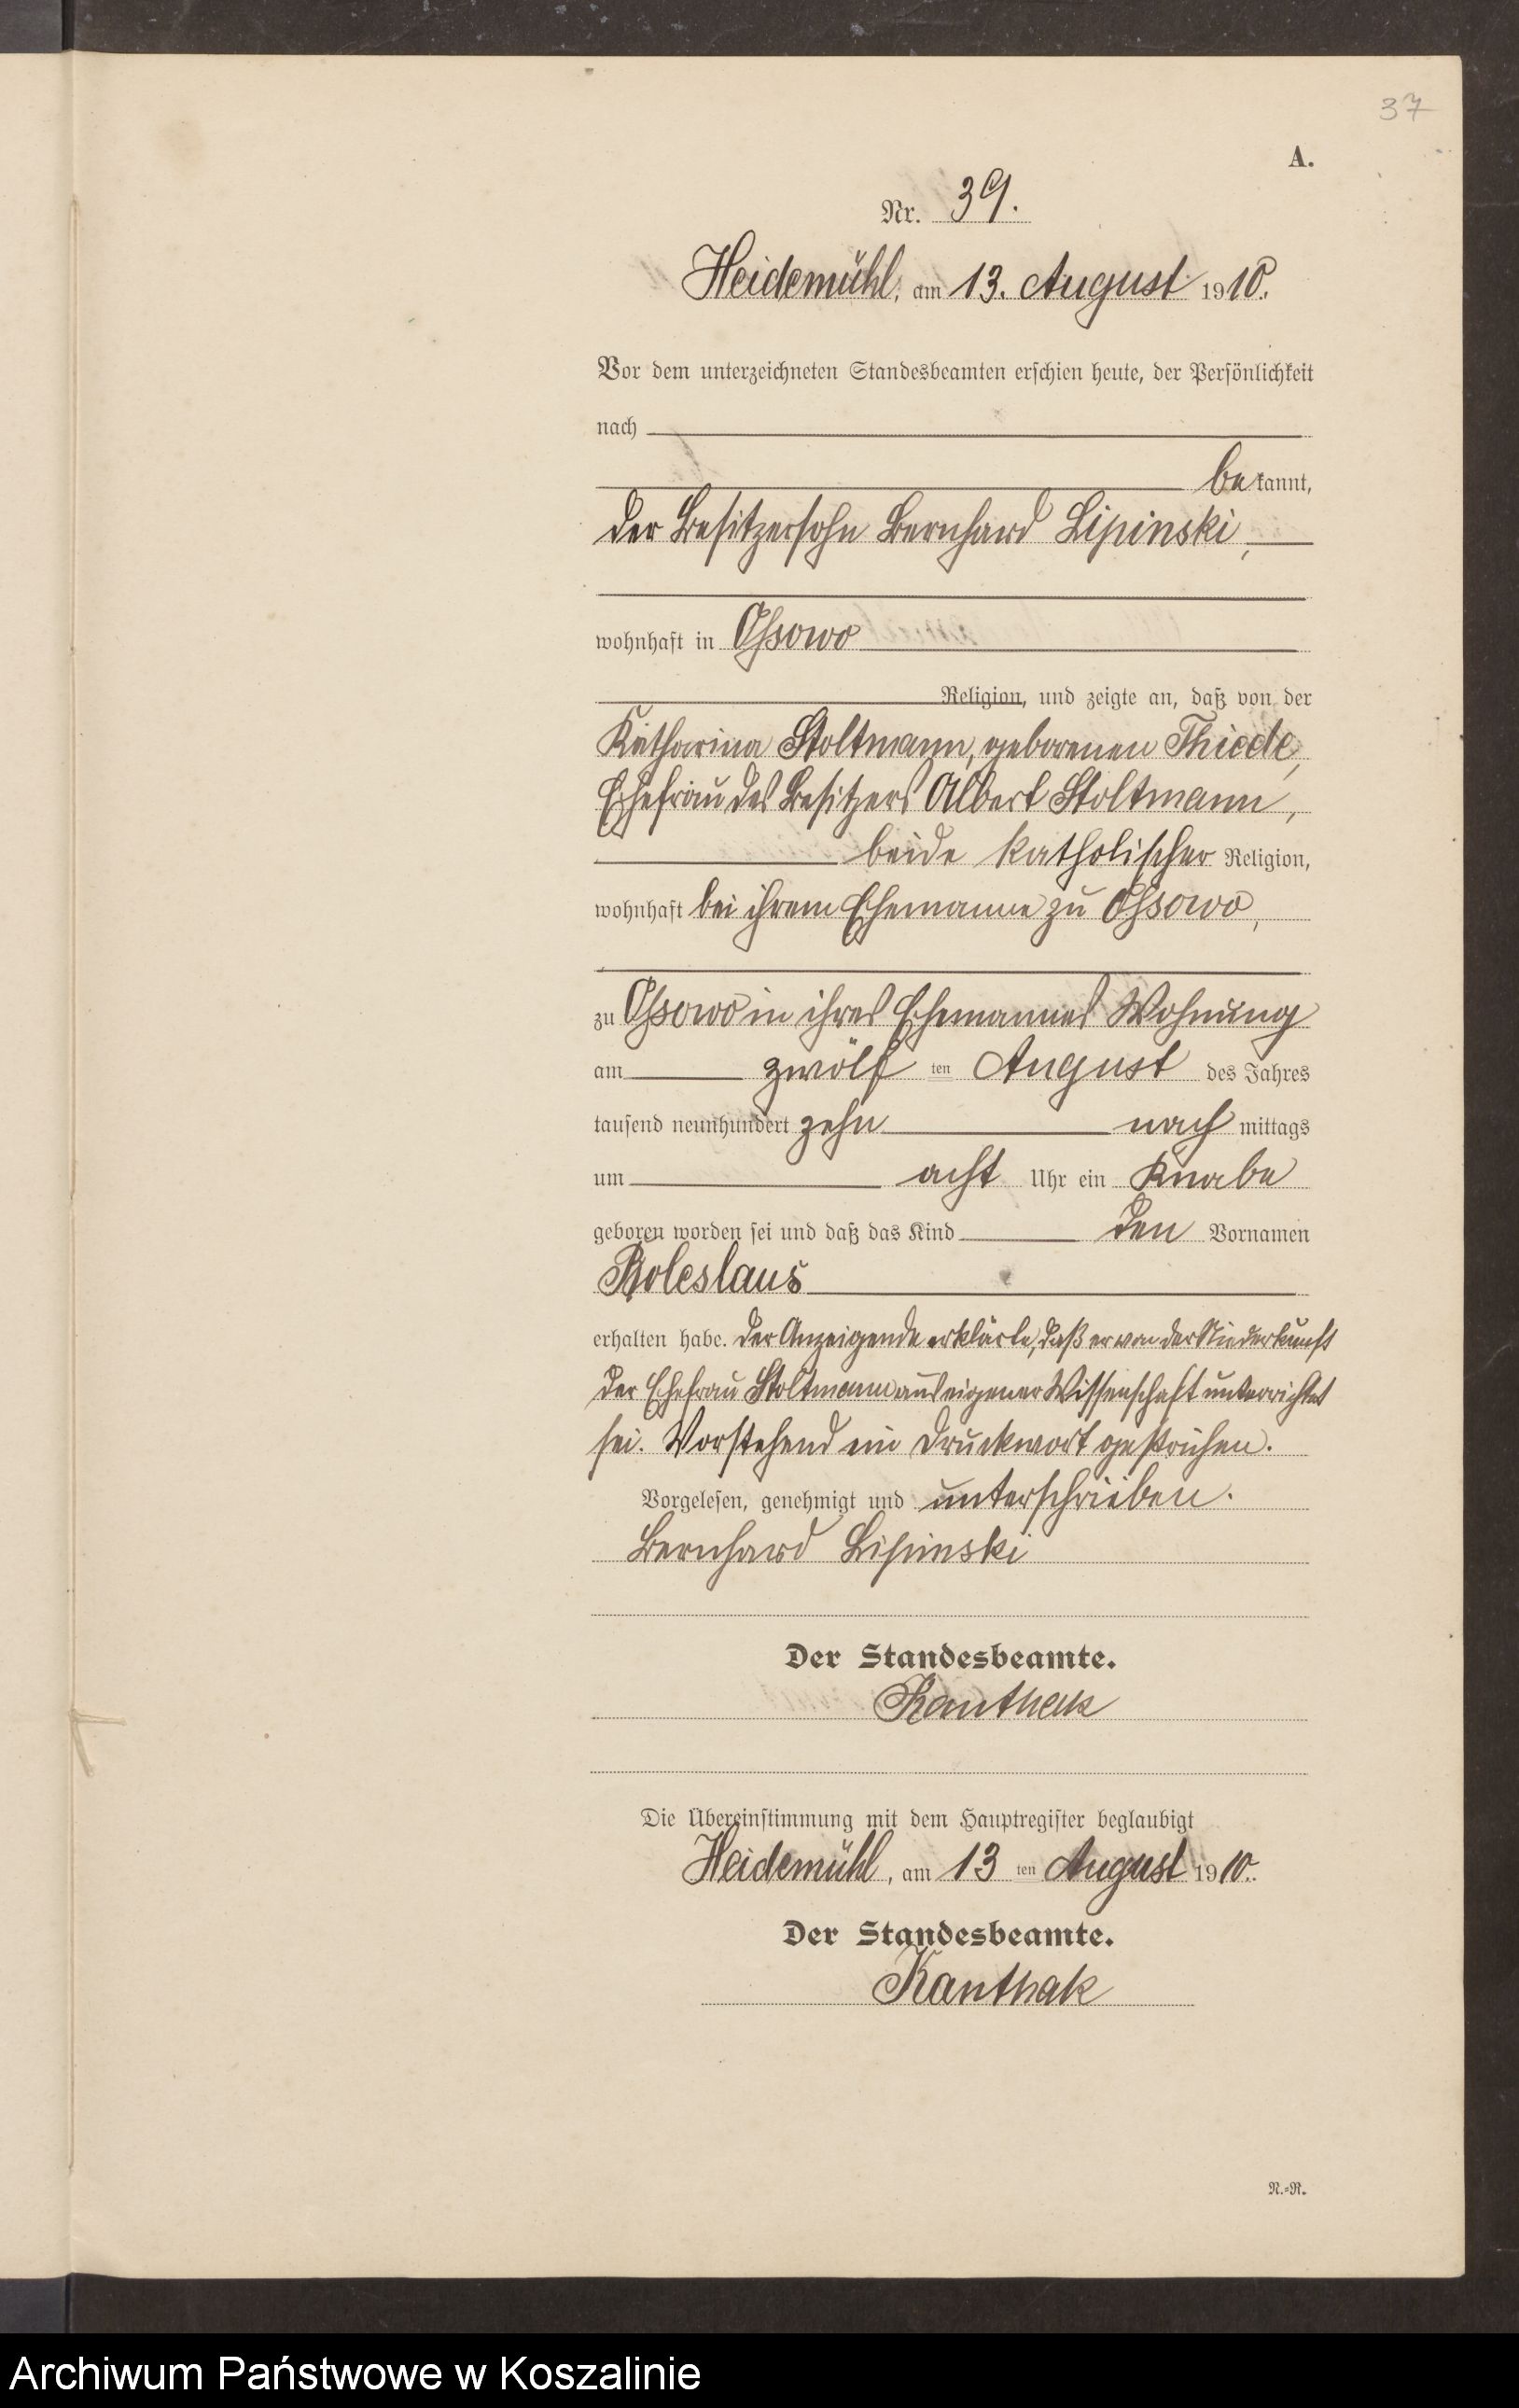 37
A.
Nr. 39.
Heidemühl, am 13. August 1910.
Vor dem unterzeichneten Standesbeamten erschien heute, der Persönlichkeit
nach
bekannt,
der Besitzersohn Bernhard Lipinski,
wohnhaft in Ossowo
Religion, und zeigte an, daß von der
Katharina Stoltmann, geborenen Thiede,
Ehefrau des Besitzers Albert Stoltmann,
beide katholischer Religion,
wohnhaft bei ihrem Ehemanne zu Ossowo,
zu Ossowo in ihres Ehemannes Wohnung
am zwölf ten August des Jahres
tausend neunhundert zehn nach mittags
um acht Uhr ein Knabe
geboren worden sei und daß das Kind den Vornamen
Boleslaus
erhalten habe. Der Anzeigende erklärte, daß er von der Niederkunft
der Ehefrau Stoltmann aus eigener Wissenschaft unterrichtet
sei. Vorstehend ein Druckwort gestrichen.
Vorgelesen, genehmigt und unterschrieben.
Bernhard Lipinski
Der Standesbeamte.
Kanthak
Die Übereinstimmung mit dem Hauptregister beglaubigt
Heidemühl, am 13 ten August 1910.
Der Standesbeamte.
Kanthak
N.-R.
Archiwum Państwowe w Koszalinie